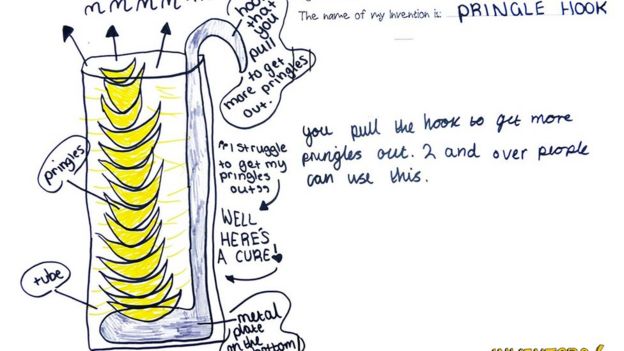 mmmmm
hook
that
you
pull
more to get
pringles
out.
The name of my invention is: PRINGLE HOOK
you pull the hook to get more
pringles out. 2 and over people
can use this.
pringles
"I struggle
to get my
pringles
out"
WELL
HERE'S
A CURE!
tube
metal
plate
on the
bottom